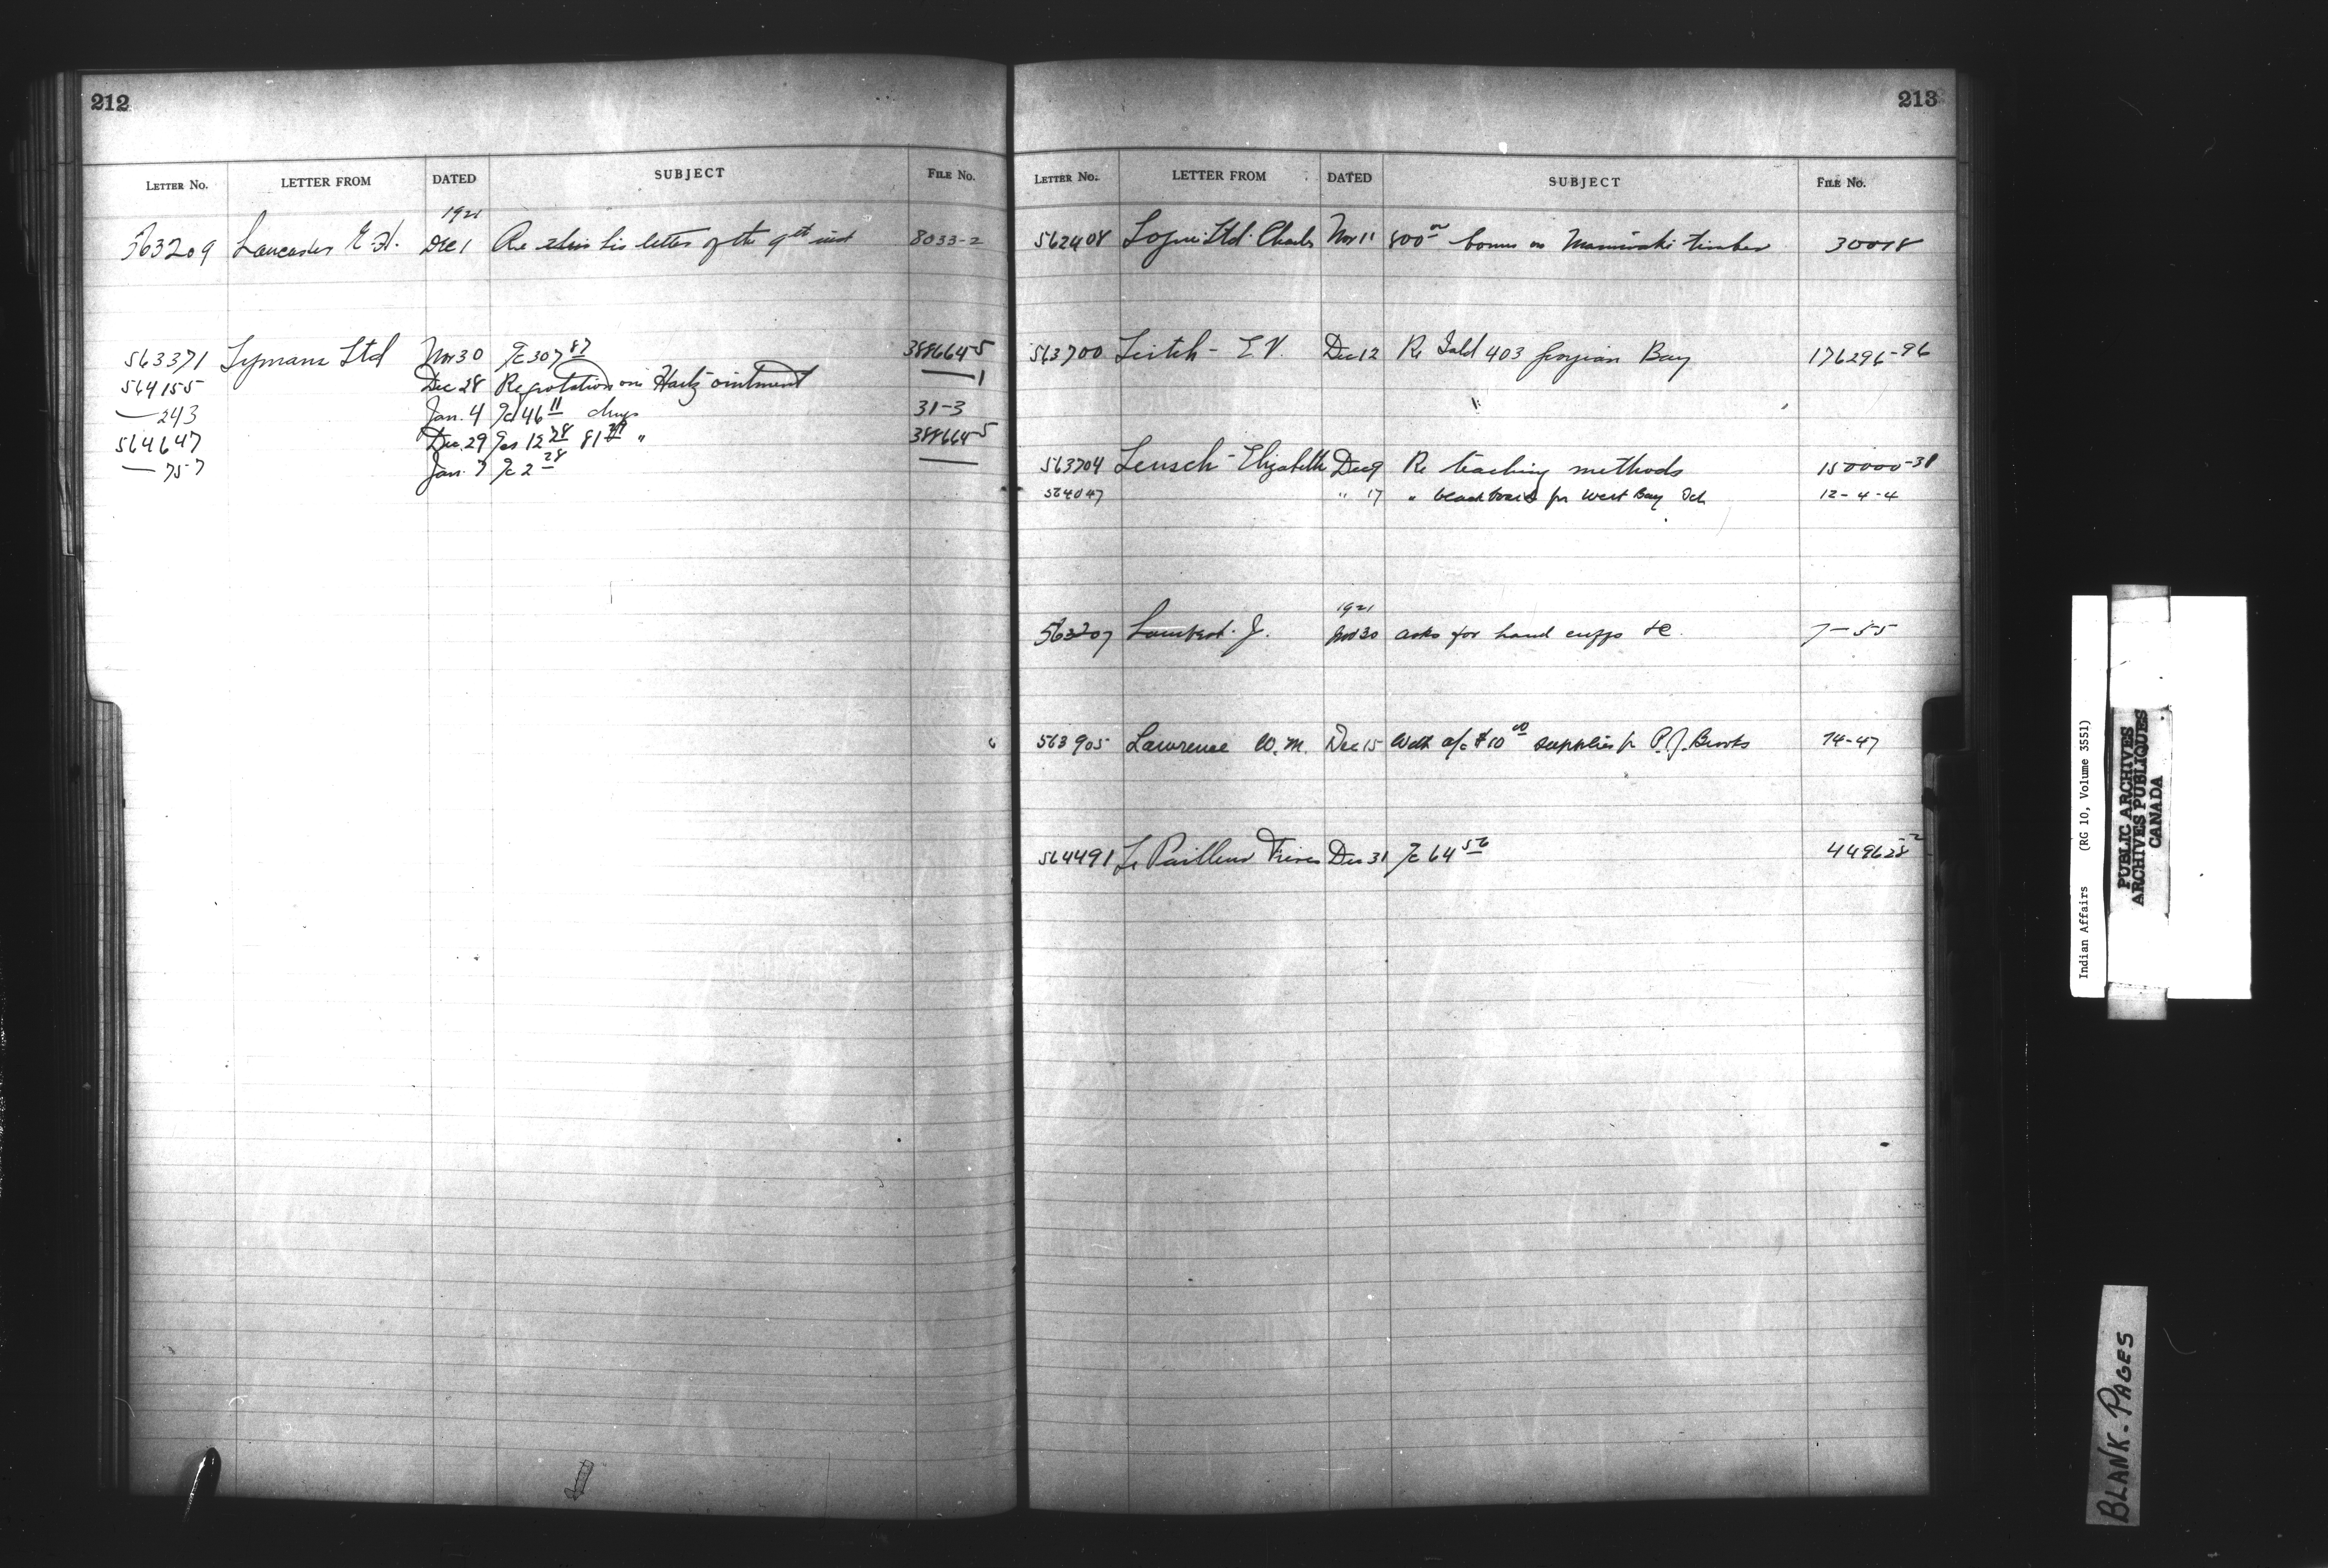 212
LETTER No. LETTER FROM DATED SUBJECT FILE No.
1921
563209 Lancaster E.H. Dec 1 Re his letter of the 9th inst 8033-2
563371 Lymans Ltd Nov 30 Ac 307 87 388664-5
564155 Dec 28 Re quotation on Hartz ointment — 1
— 243 Jan. 4 Ac 46 11 drugs 31-3
564647 Dec. 29 Acs 12 28 81 "  388664-5
— 757 Jan. 7 Ac 2 28 —
213
LETTER No. LETTER FROM DATED SUBJECT FILE No.
562408 Logue Ltd. Charles Nov 11 800 00 bonus on Maniwaki timber 30018
563700 Leitch - E.V. Dec 12 Re Isld 403 Georgian Bay 176296-96
563704 Leusch - Elizabeth Dec 9 Re teaching methods 150000-31
564047 " 17 " blackboard for West Bay Sch 12-4-4
1921
563207 Lambert. J. Nov 30 asks for hand cuffs &c. 7-55
563905 Lawrence W.M. Dec 15 With a/c $10 00 supplies for P.J. Brooks 74-47
564491 Le Pailleur Freres Dec 31 Ac 64 56 449628-2
Indian Affairs (RG 10, Volume 3551)
PUBLIC ARCHIVES
ARCHIVES PUBLIQUES
CANADA
BLANK-PAGES